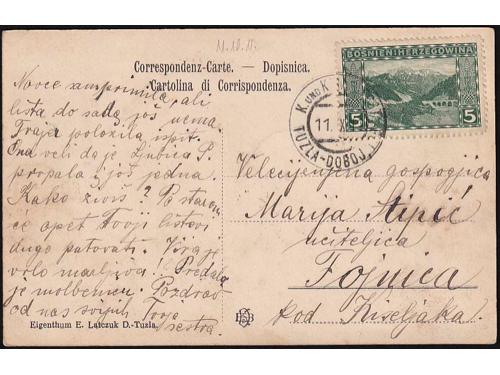 11.10.11.
Correspondenz-Carte. — Dopisnica.
Cartolina di Corrispondenza.
BOSNIEN HERZEGOWINA
5 5
K. UND K.
11.
TUZLA-DOBOJ
Novce sam primila, ali
lista do sada još nema.
Traja položila ispit.
Ona veli da je Ljubica P.
propala i još jedna.
Kako živiš? Po starom
će opet Tvoji listovi
dugo putovati.
vrlo marljiva! Predala
je molbenicu. Pozdrav
od nas svijuh Tvoja
sestra.
Velecijenjena gospogjica
Marija Stipić
učiteljica
Fojnica
kod Kiseljaka.
Eigenthum E. Latczuk D.-Tuzla.